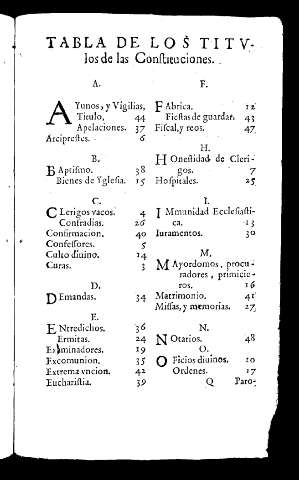 TABLA DE LOS TITV-
los de las Constituciones.
A.
AYunos, y Vigilias,
Titulo, 44
Apelaciones. 37
Arciprestes. 6
B.
BAptismo. 38
Bienes de Yglesia. 15
C.
CLerigos vacos. 4
Confradias. 26
Confirmacion. 40
Confessores. 5
Culto diuino. 14
Curas. 3
D.
DEmandas. 34
E.
ENtredichos. 36
Ermitas. 24
Examinadores. 19
Excomunion. 35
Extrema vncion. 42
Eucharistia. 39
F.
FAbrica. 12
Fiestas de guardar. 43
Fiscal, y reos. 47
H.
HOnestidad de Cleri-
gos. 7
Hospitales. 25
I.
IMmunidad Ecclesiasti-
ca. 13
Iuramentos. 30
M.
MAyordomos, procu-
radores, primicie-
ros. 16
Matrimonio. 41
Missas, y memorias. 27
N.
NOtarios. 48
O.
OFicios diuinos. 10
Ordenes. 17
Q Paro-